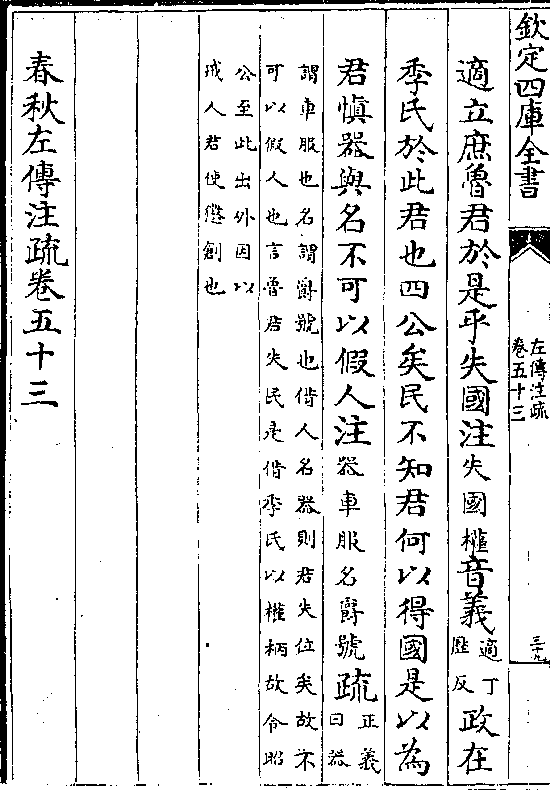 欽定四庫全書
左傳注疏
卷五十三
三十九
適立庶魯君於是乎失國注失國權音義適丁歷反政在
季氏於此君也四公矣民不知君何以得國是以為
君慎器與名不可以假人注器車服名爵號疏正義曰器
謂車服也名謂爵號也借人名器則君失位矣故不
可以假人也言魯君失民是借季氏以權柄故令昭
公至此出外因以
戒人君使懲創也
春秋左傳注疏卷五十三